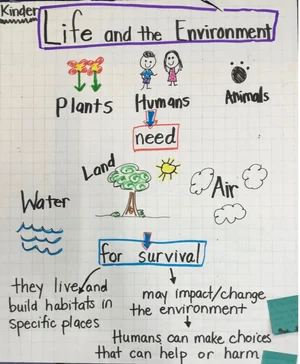 Kinder
Life and the Environment
Plants Humans Animals
need
Land
Water
Air
for survival
they live and
build habitats in
specific places
may impact/change
the environment
Humans can make choices
that can help or harm